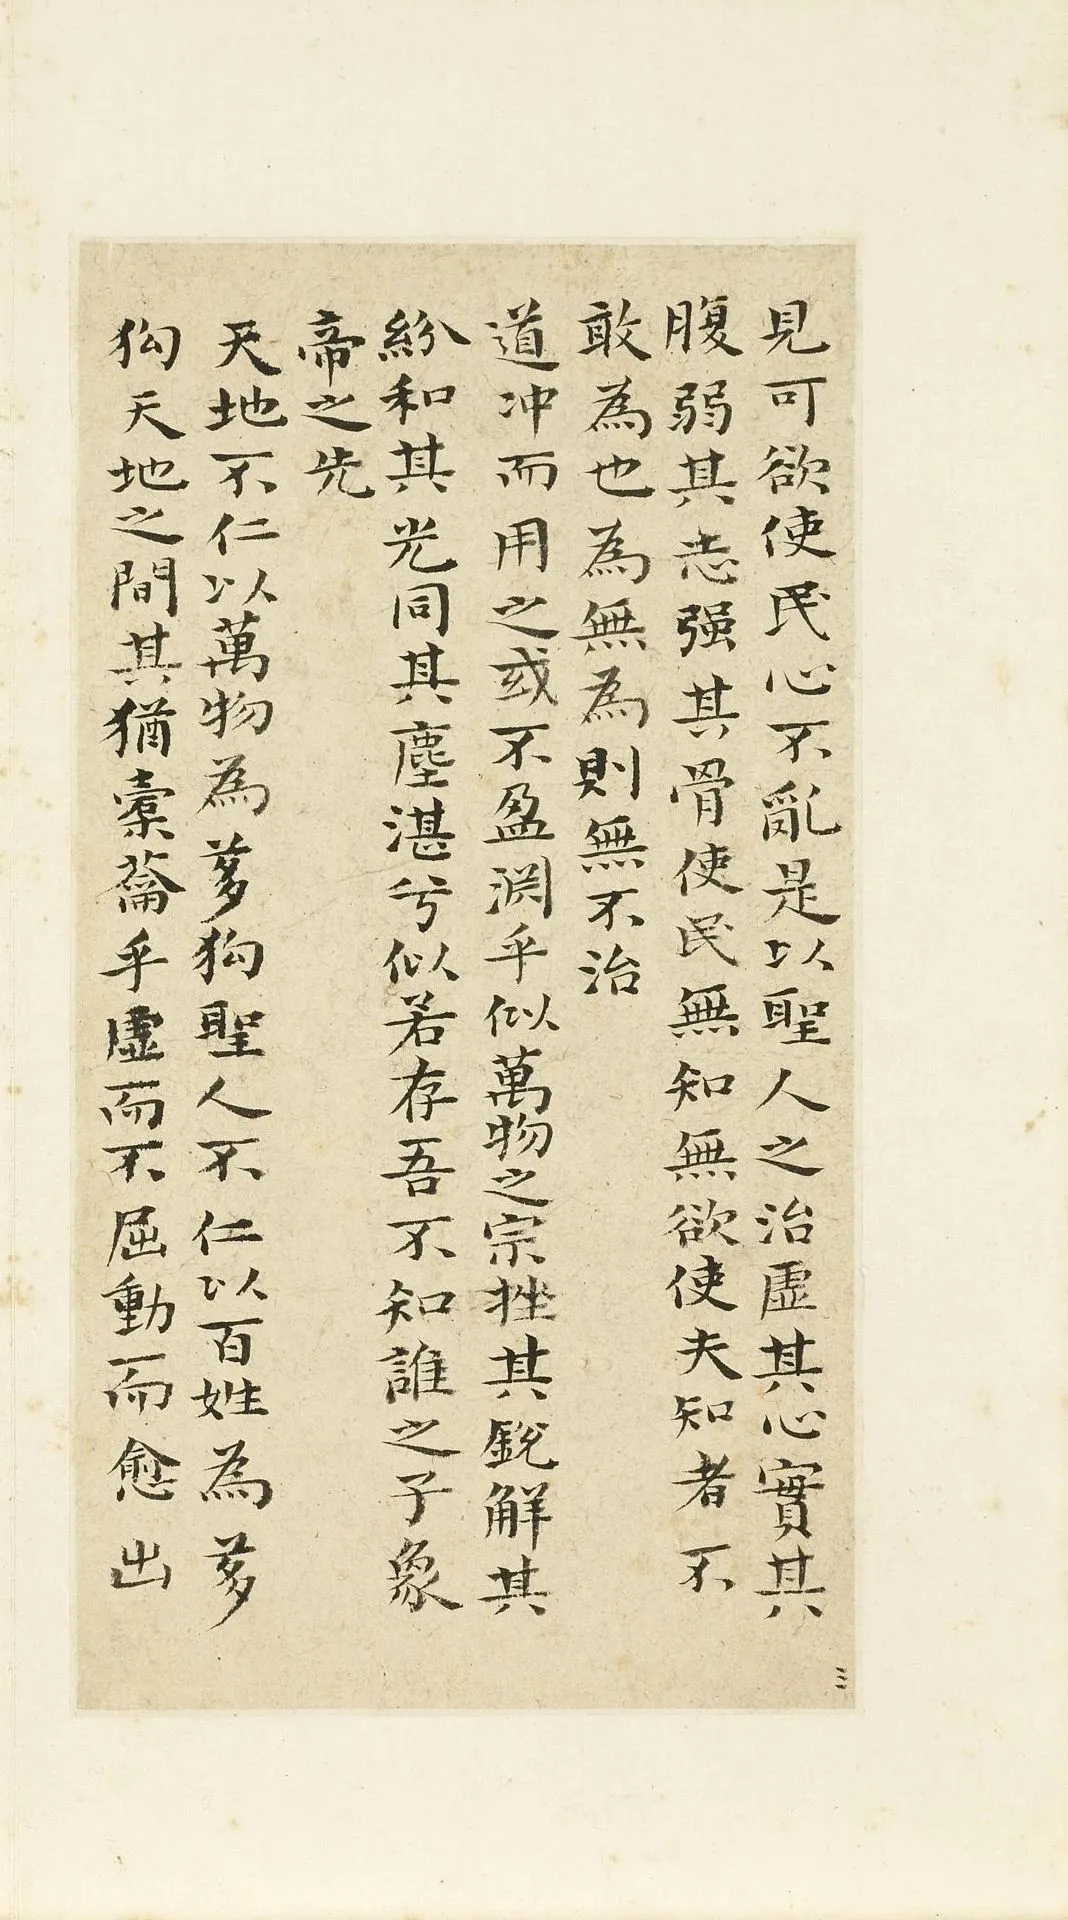 見可欲使民心不亂是以聖人之治虛其心實其
腹弱其志强其骨使民無知無欲使夫知者不
敢為也為無為則無不治
道冲而用之或不盈淵乎似萬物之宗挫其銳解其
紛和其光同其塵湛兮似若存吾不知誰之子象
帝之先
天地不仁以萬物為芻狗聖人不仁以百姓為芻
狗天地之間其猶橐籥乎虛而不屈動而愈出
三